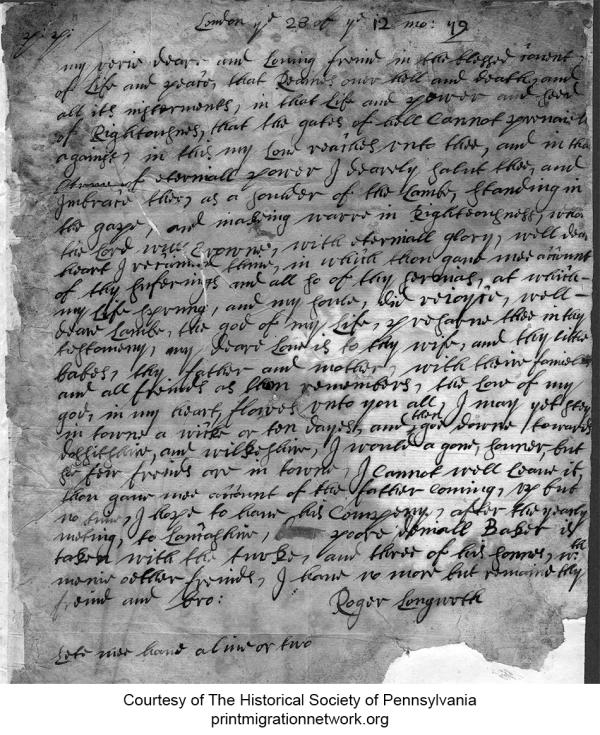 London ye 28 of ye 12 mo: 79
my verie deare and Loving freind in the blessed
of Life and peace, that Reaines over hell and death, and
all its instorments, in that Life and power and seed
of Rightousnes, that the gates of hell Cannot prevaile
against, in this my Love reaches unto thee, and in the
of eternall power I dearely salut thee, and
Imbrace thee, as a souldier of the Lambe, standing in
the gape, and makeing warre in Rightousness, whom
the Lord will Crowne, with eternall glory, well deare
heart I received thine, in which thou gave mee acount
of thy suferings and all so of thy at which
my Life sprung, and my soule, did reioyce, well
deare Lambe, the god of my Life, preserve thee in thy
testemony, my deare Love is to thy wife, and thy little
babes, thy father and mother, with theire
and all freinds as thou remembers, the Love of my
god, in my heart, flowes unto you all, I may yet stey
in towne a wicke or ten dayes, and then goe downe towards
and wilkeshire, I would a gone sooner, but
soe few freinds are in towne, I Cannot well Leave it,
thou gave mee acount of the father coming, up but
no time, I hope to have his Company, after the yearly
meting, to Lancashire, poore deniall Baker is
taken with the turke, and three of his sonnes, wth
menie other freinds, I have no more but remaine thy
freind and bro: Roger Longworth
Lete mee have a line or two
Courtesy of The Historical Society of Pennsylvania
printmigrationnetwork.org